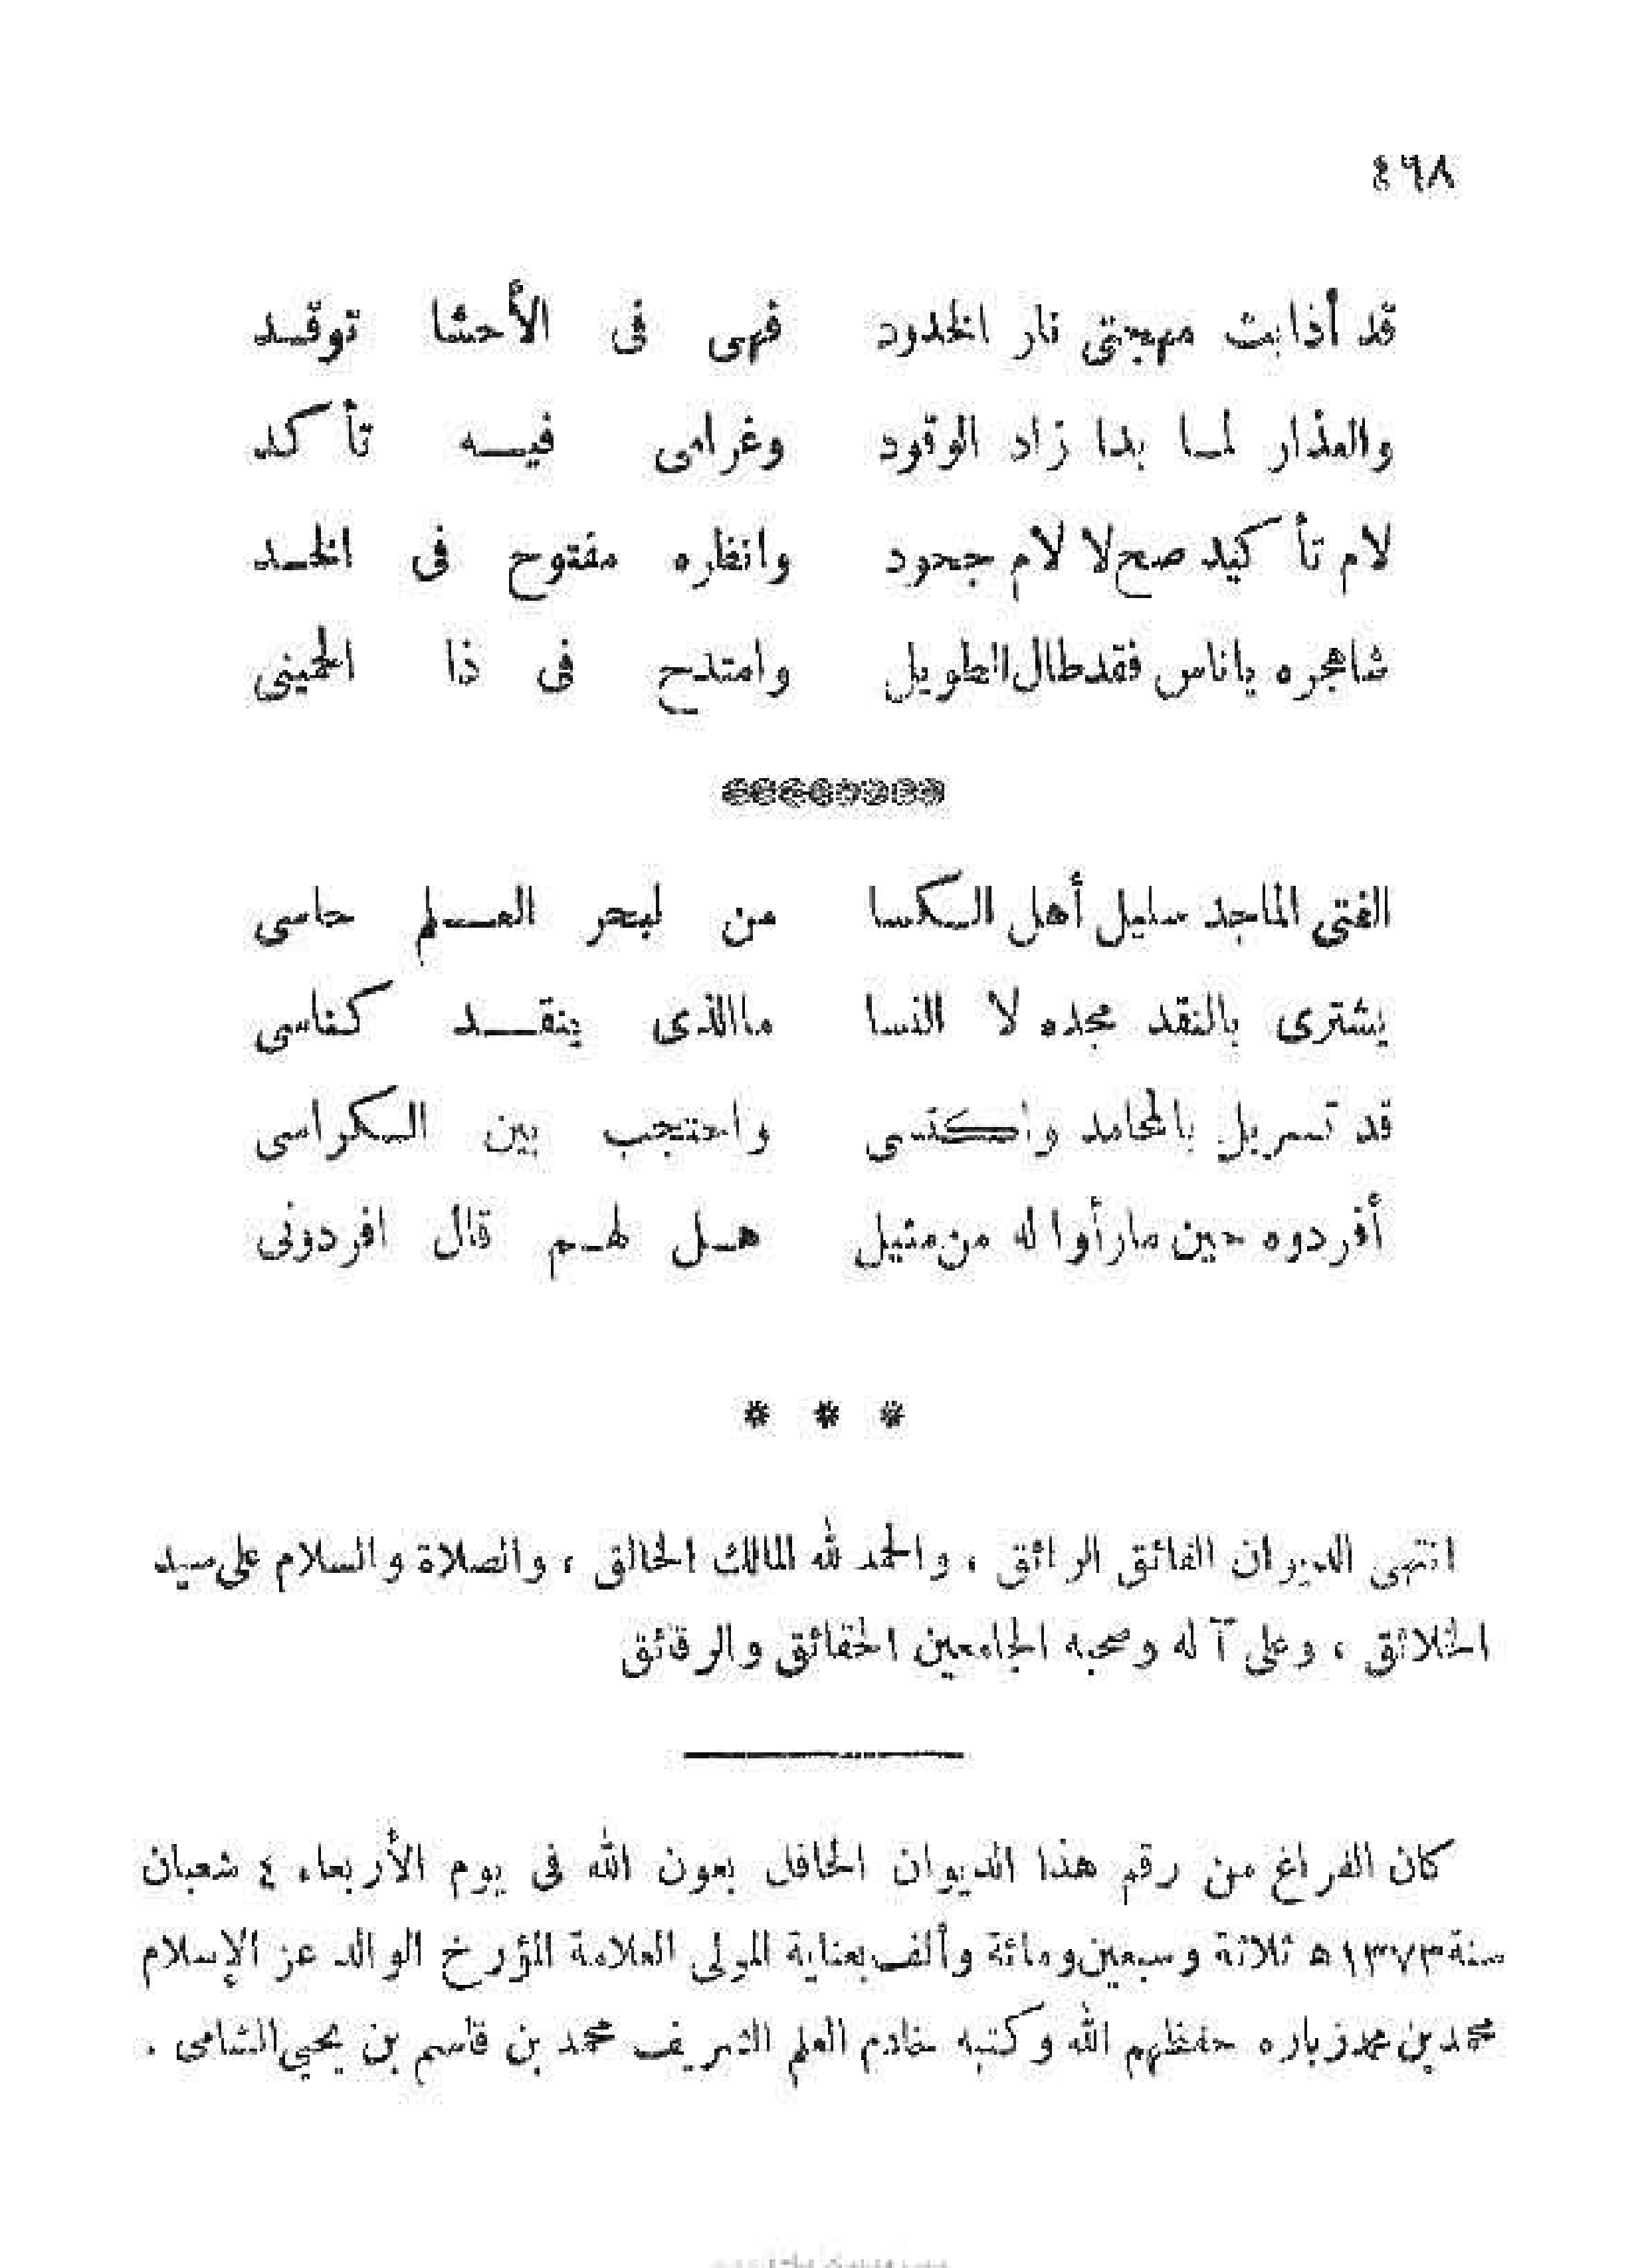 ٤٦٨
قد أذابت مهجتى نار الخدود فهى فى الأحشا توقد
والعذار لما بدا زاد الوقود وغرامى فيه تأكد
لام تأكيد صح لا لام جحود وانظاره مفتوح فى الخد
شاهجره ياناس فقد طال الطويل وامتدح فى ذا الحمينى
الفتى الماجد سليل أهل الكسا من لبحر العلم حاسى
يشترى بالنقد مجده لا النسا ما الذى ينقد كناسى
قد تسربل بالمحامد واكتسى واحتجب بين الكراسى
أفردوه حين مارأوا له من مثيل هل لهم قال افردونى
* * *
انتهى الديوان الفائق الرائق ، والحمد لله المالك الخالق ، والصلاة والسلام على سيد
الخلائق ، وعلى آله وصحبه الجامعين الحقائق والرقائق
كان الفراغ من رقم هذا الديوان الحافل بعون الله فى يوم الأربعاء ٤ شعبان
سنة ١٣٧٣ ه ثلاثة وسبعين ومائة وألف بعناية المولى العلامة المؤرخ الوالد عز الإسلام
محمد بن محمد زباره حفظهم الله وكتبه خادم العلم الشريف محمد بن قاسم بن يحيي الشامى .